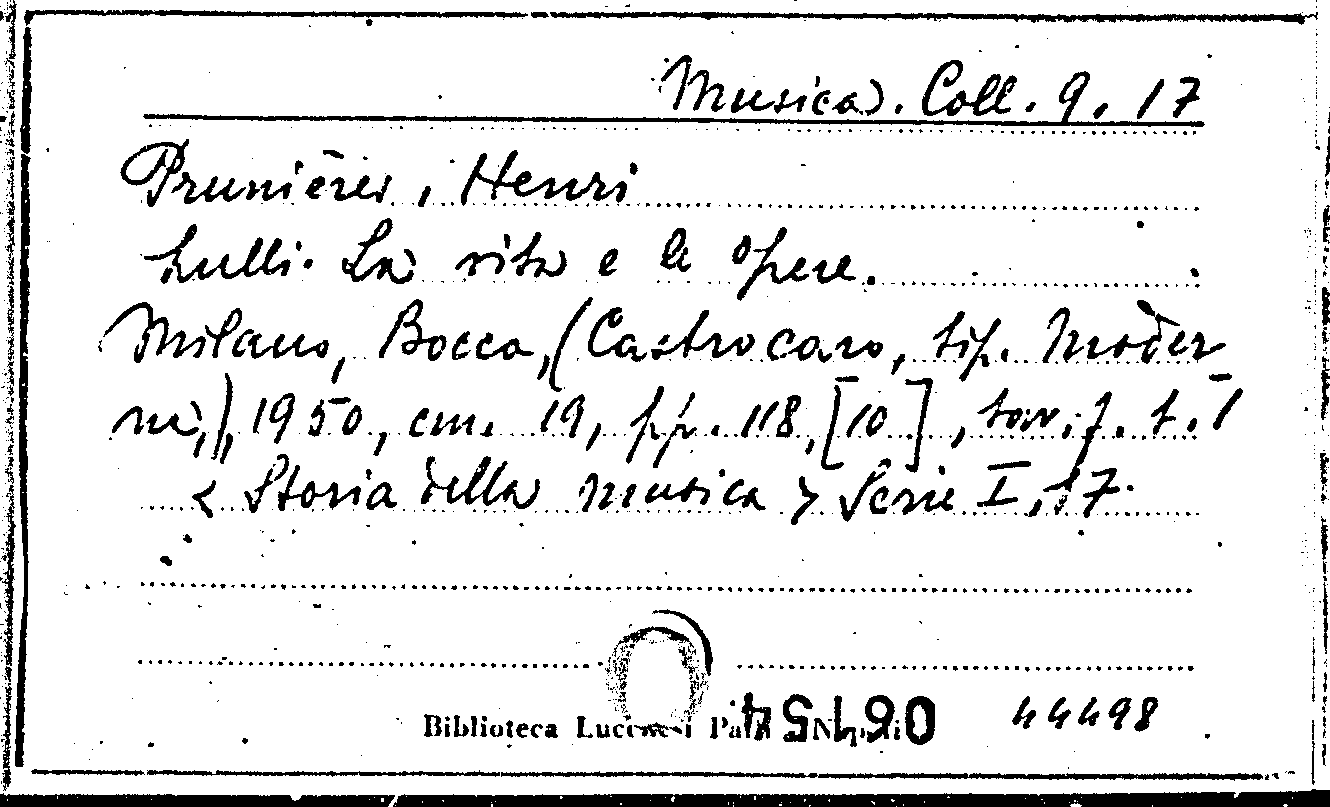 Musica. Coll. 9. 17
Prunières, Henri
Lulli. La vita e le opere.
Milano, Bocca, (Castrocaro, tip. Moder
na,), 1950, cm. 19, pp. 118, [10], tav. f. t. 1
< Storia della musica > Serie I, 17.
Biblioteca Lucchesi Palli Napoli 44498